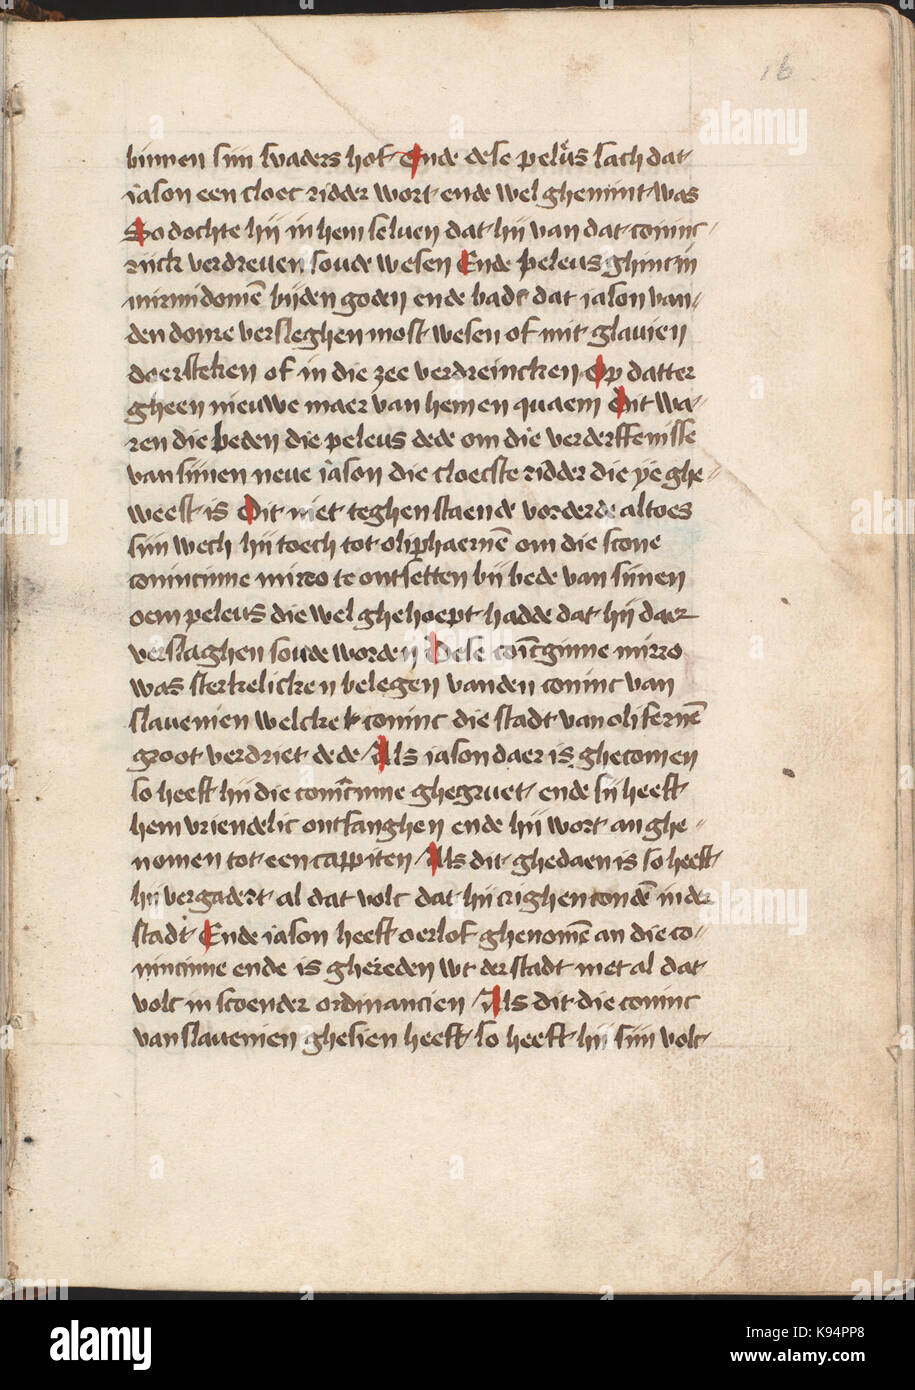 16
binnen sijn svaders hof Ende dese pele᷒us sach dat
jason een cloec ridder wort ende wel ghemint was
So dochte hij in hem seluen dat hij van dat coninc
rijck verdreuen soude wesen Ende peleus ghinc in
mirmidomē bijden goden ende badt dat iason van-
den donre versleghen most wesen of mit glauien
doersteken of in die zee verdreincken Op datter
gheen nieuwe maer van hem en quaem Dit wa-
ren die beden die peleus dede om die verderffenisse
van sijnen neue iason die cloecste ridder die ye ghe-
weest is Dit niet teghenstaende vorderde altoes
sijn wech hij toech tot oliphaernē om die scone
conincinne mirro te ontsetten bij bede van sijnen
oem peleus die wel ghehoept hadde dat hij daer
verslaghen soude worden Dese conīcginne mirro
was sterkelicken belegen vanden coninc van
slauenien welcke coninc die stadt van olifernē
groot verdriet dede / Als iason daer is ghecomen
so heeft hij die conīcinne ghegruet ende sij heeft
hem vriendelic ontfanghen ende hij wort anghe-
nomen tot een cappiten / Als dit ghedaen is so heeft
hij vergadert al dat volc dat hij crighen condē in der
stadt Ende iason heeft oerlof ghenomē an die co-
nincinne ende is ghereden wt der stadt met al dat
volc in scoender ordinancien / Als dit die coninc
van slauenien ghesien heeft so heeft hij sijn volc
alamy
Image ID: K94PP8
www.alamy.com